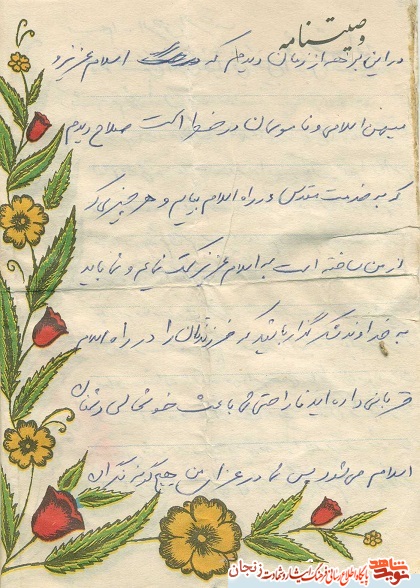 وصیتنامه
در این برهه از زمان دیدم که اسلام عزیز و
میهن اسلامی و ناموسمان در خطر است صلاح دیدم
که به خدمت مقدس در راه اسلام بیایم و هر چیزی که
از من ساخته است به اسلام عزیز کمک نمایم و شما باید
به خداوند شکر گذار باشید که فرزندتان را در راه اسلام
قربانی داده اید ناراحتی شما باعث خوشحالی دشمنان
اسلام می شود پس شما در عزای من هیچ گونه نگران
نوید شاهد
پایگاه اطلاع رسانی فرهنگ ایثار و شهادت زنجان